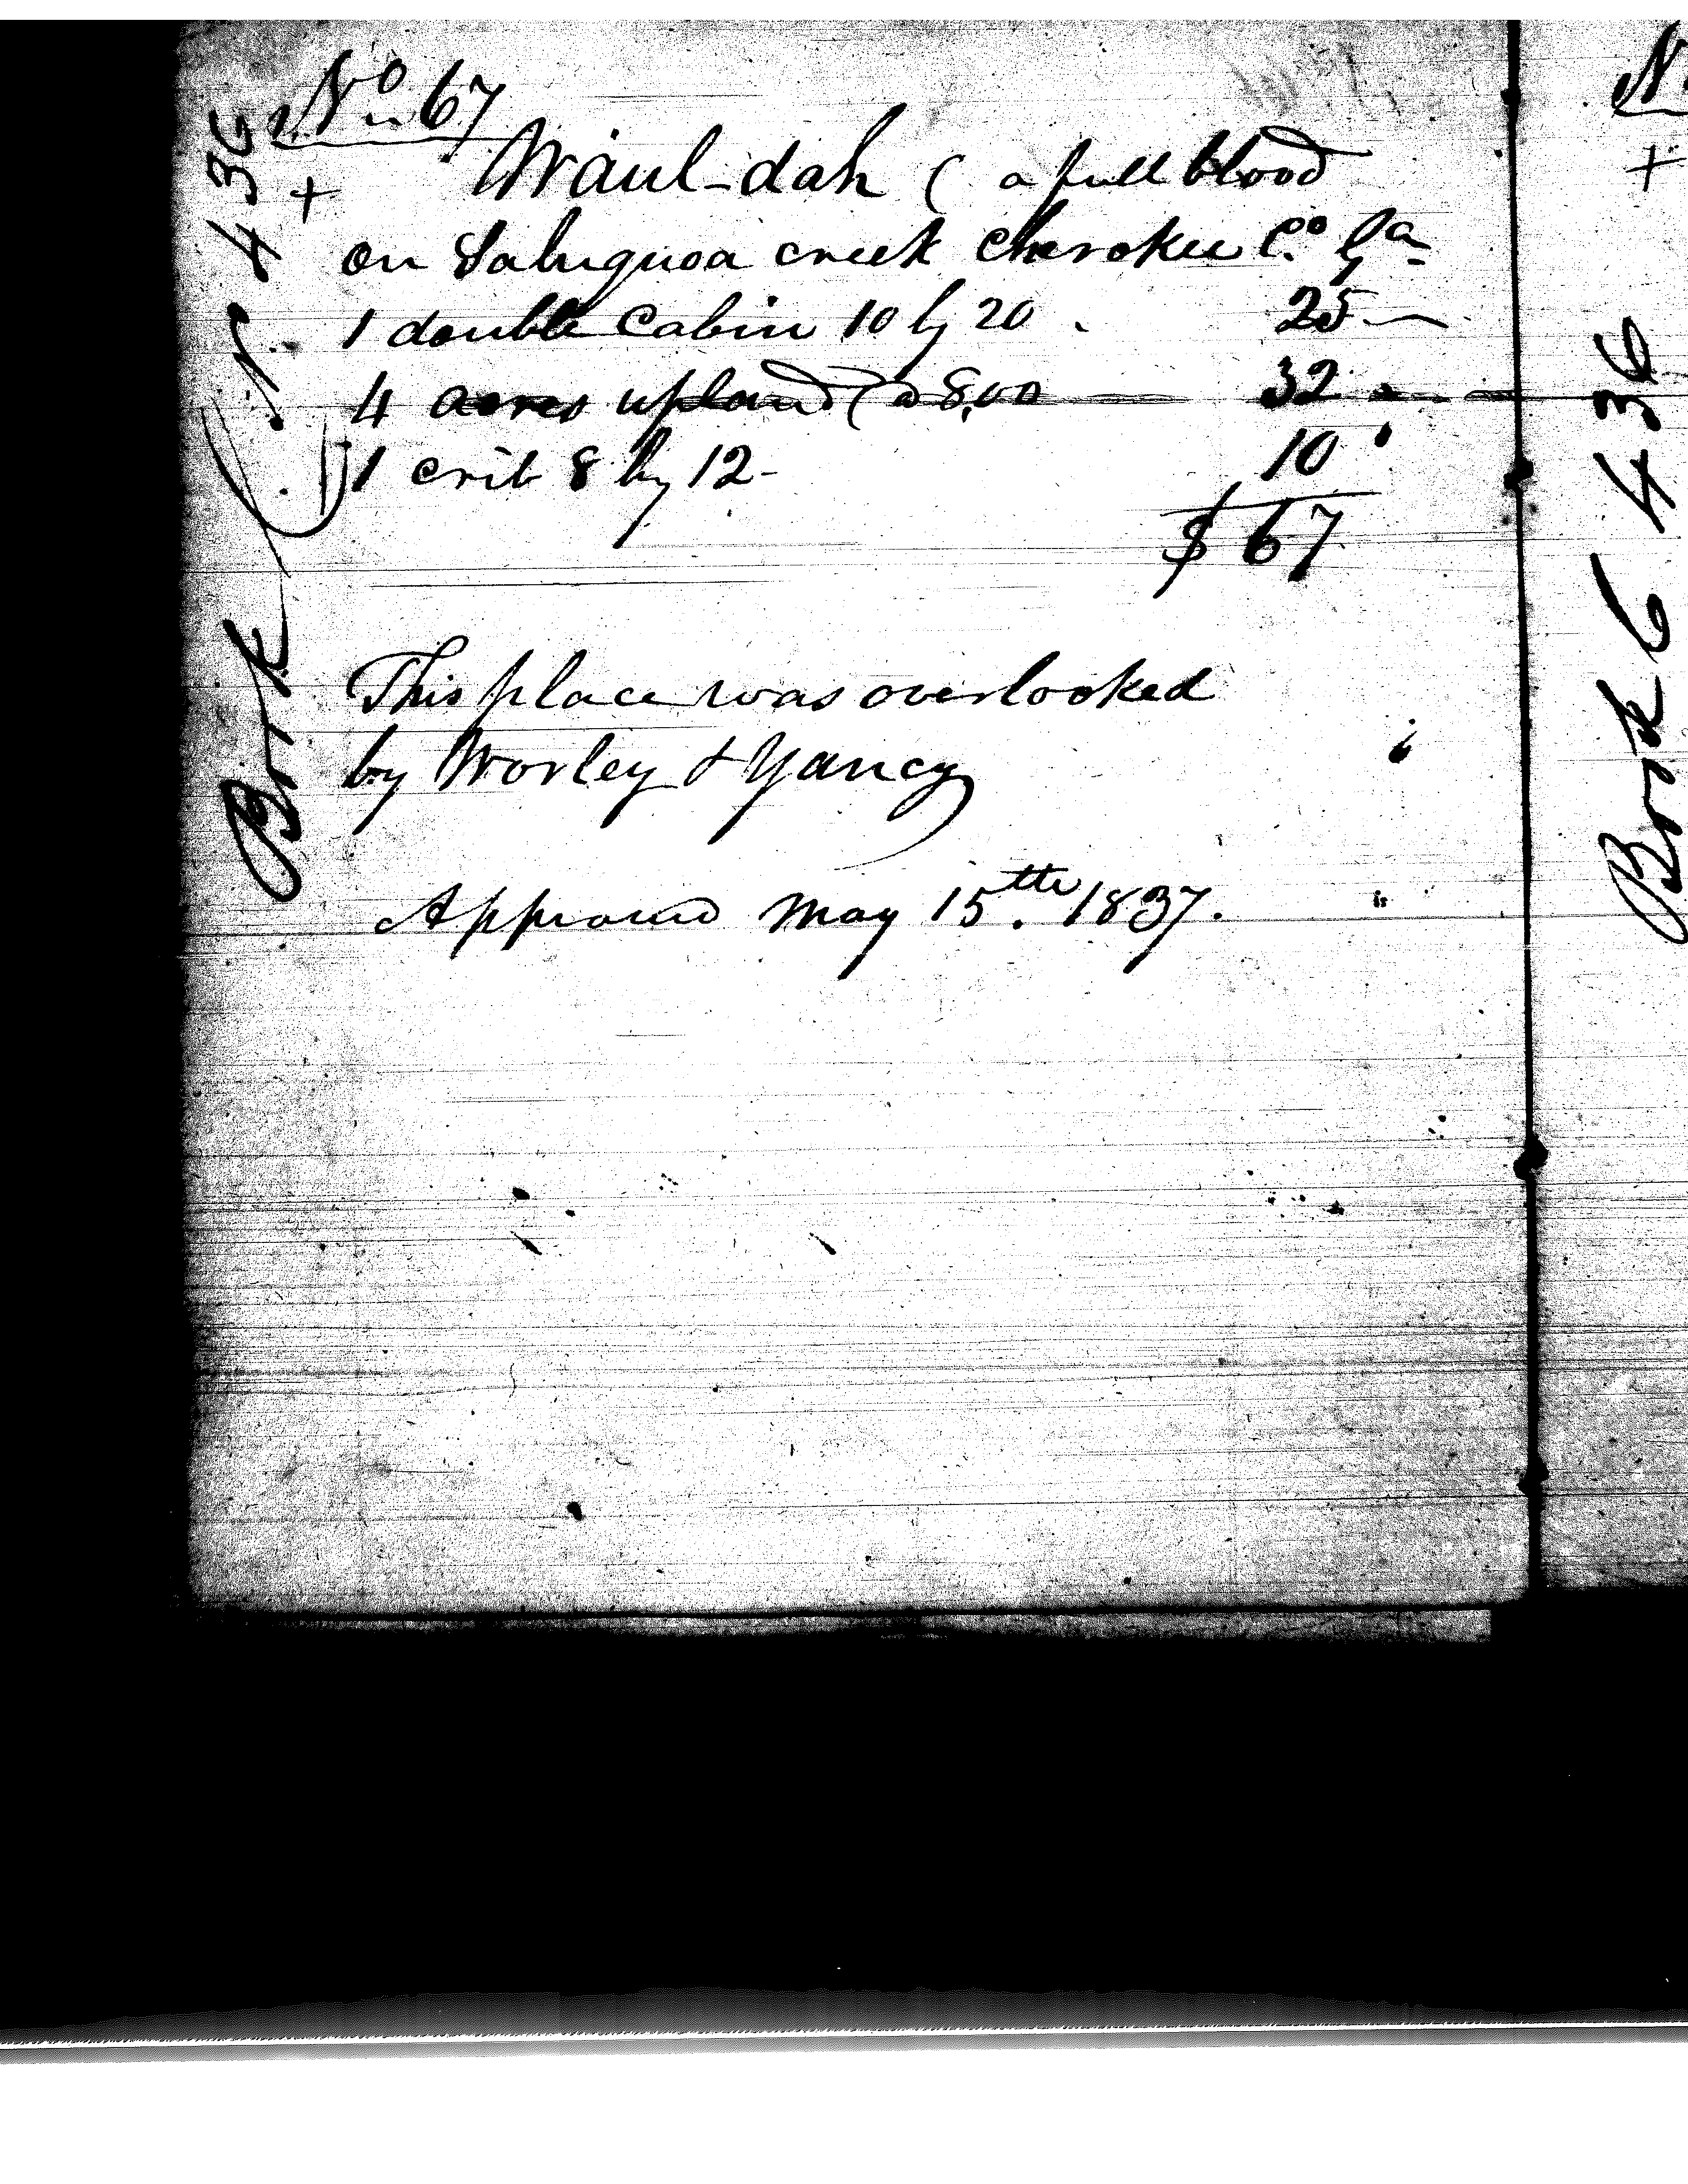 No 67
+ Waul-dah ( a full blood
on Saluquoa creek Cherokee Co. Ga
1 double Cabin 10 by 20 . 25
4 acres upland @ 8,00 32
1 crib 8 by 12 - 10
$ 67
This place was overlooked
by Worley & Yancy
Approved May 15th. 1837.
Book 436
N
+
Book 6 436